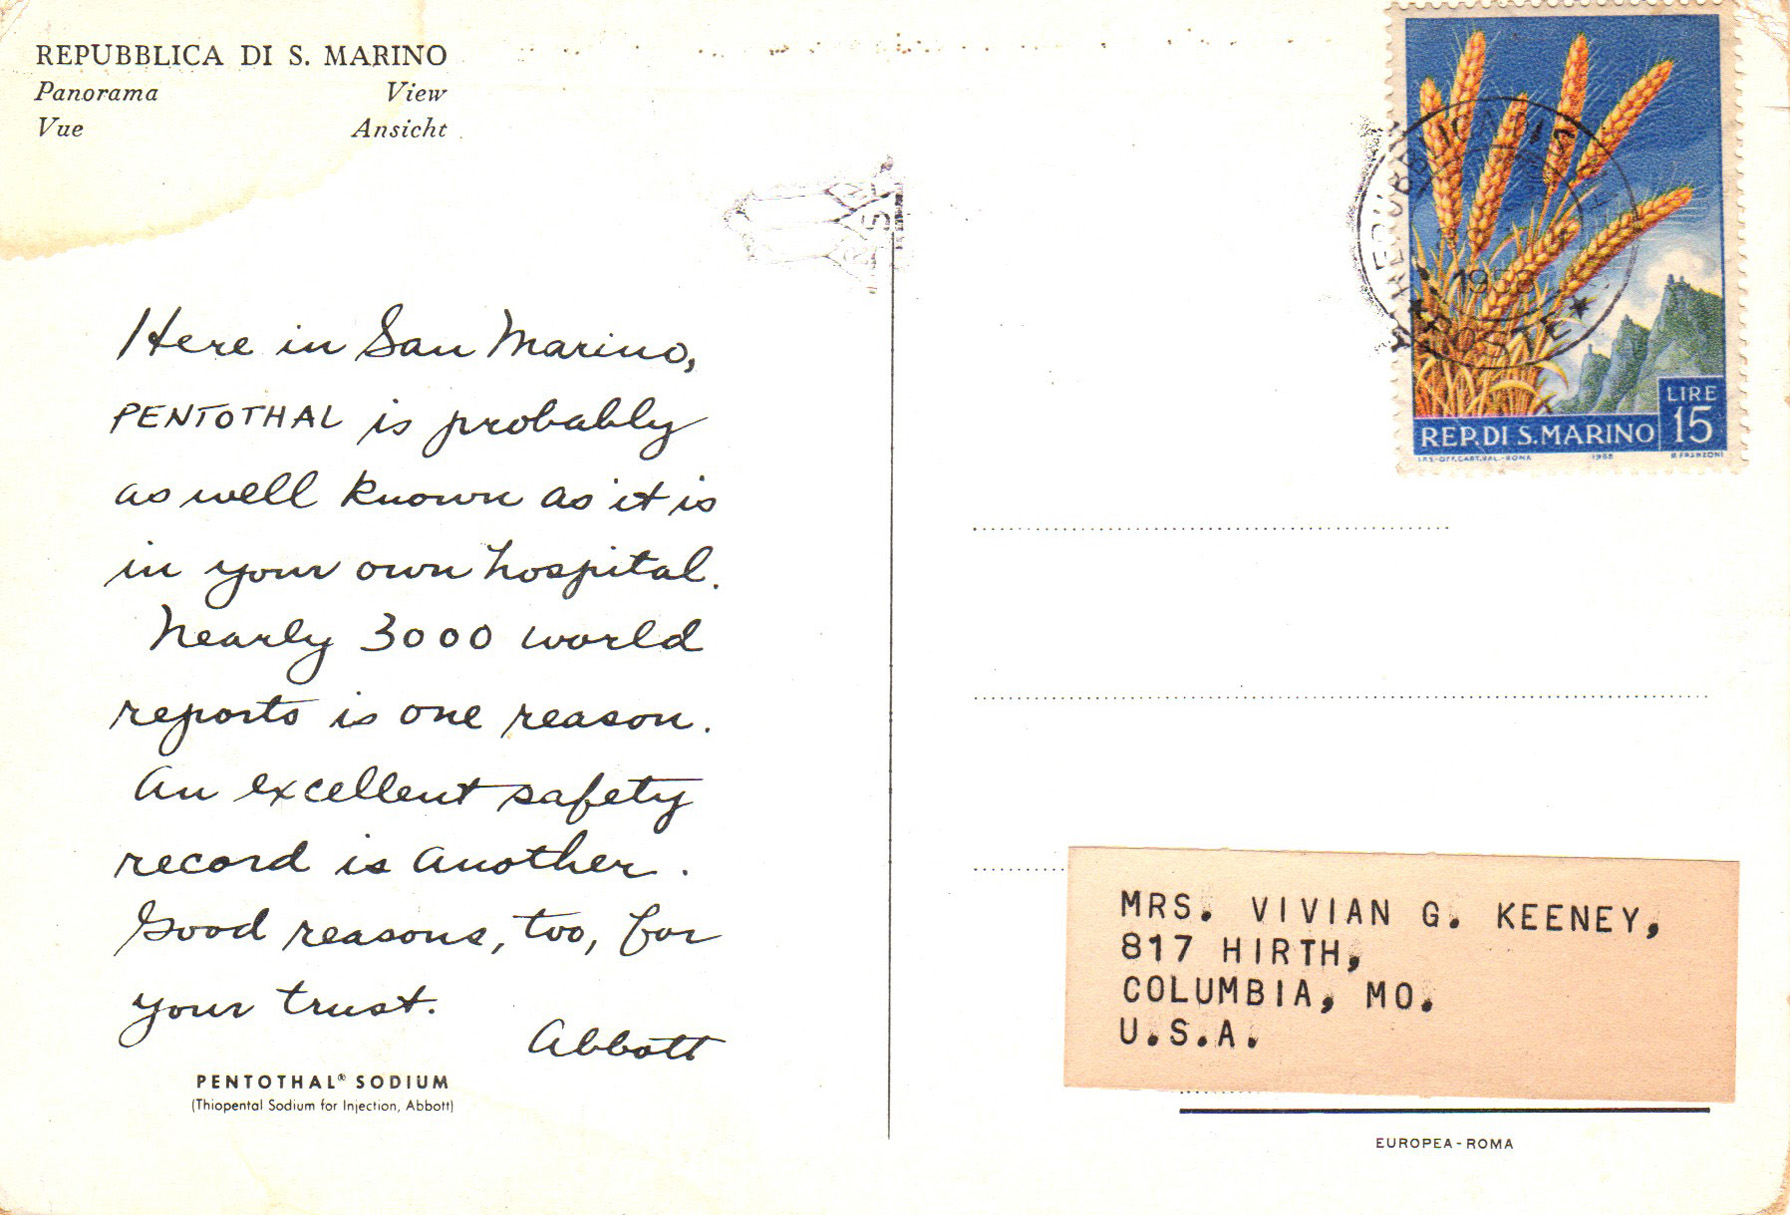 REPUBBLICA DI S. MARINO
Panorama View
Vue Ansicht
Here in San Marino,
PENTOTHAL is probably
as well known as it is
in your own hospital.
Nearly 3000 world
reports is one reason.
An excellent safety
record is another.
Good reasons, too, for
your trust.
Abbott
PENTOTHAL® SODIUM
(Thiopental Sodium for Injection, Abbott)
REPUBBLICA DI S.
1958
POSTE
LIRE
15
REP. DI S. MARINO
I.P.S.-OFF. CART. VAL.-ROMA 1958 R. FRANZONI
MRS. VIVIAN G. KEENEY,
817 HIRTH,
COLUMBIA, MO.
U.S.A.
EUROPEA-ROMA